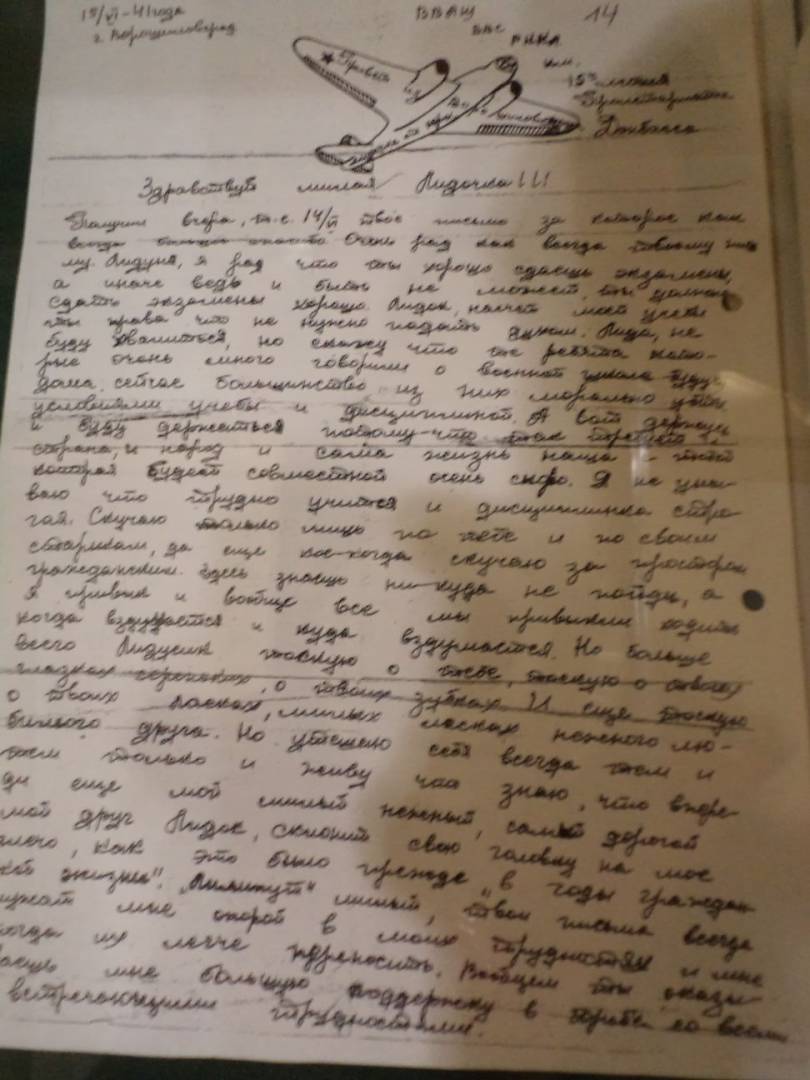 15/VI-41 года
г. Ворошиловград
ВВАШ
14
ВВС
РККА
им.
15ти летия
Пролетариата
Донбасса
Привет из
Здравствуй милая Лидочка!!!
Получил вчера, т.е. 14/VI твоё письмо за которое как
всегда Очень рад как всегда твоему пись
му. Лидуня, я рад что ты хорошо сдаешь экзамены,
а иначе ведь и быть не может, ты должна
сдать экзамены хорошо. Лидок, насчет моей учебы
ты права что не нужно падать духом. Лида, не
буду хвалиться, но скажу что те ребята кото-
рые очень много говорили о военной школе будучи
дома, сейчас большинство из них морально убиты
условиями учебы и дисциплиной. А вот держусь
и буду держаться потому-что так требует
страна, и народ и сама жизнь наша с тобой
которая будет совместной очень скоро. Я не уны-
ваю что трудно учится и дисциплинка стро-
гая. Скучаю только лишь по тебе и по своим
старикам, да еще кое-когда скучаю за простором
гражданским. Здесь знаешь ни-куда не пойдешь, а
я привык и вообще все мы привыкли ходить
когда вздумается и куда вздумается. Но больше
всего Лидусик тоскую о тебе, тоскую о твоих
глазках сереньких, о твоих зубках И еще тоскую
о твоих ласках, милых ласках нежного лю-
бимого друга. Но утешаю себя всегда тем и
тем только и живу что знаю, что впере-
ди еще мой милый нежный, самый дорогой
мой друг Лидок, склонит свою головку на мое
плечо, как это было прежде „в годы граждан-
кой жизни". милый, твои письма всегда
ужат мне опорой в моих трудностях и мне
огда их легче переносить. Вообщем ты оказы-
аешь мне большую поддержку в борьбе со всеми
встречающимися трудностями.